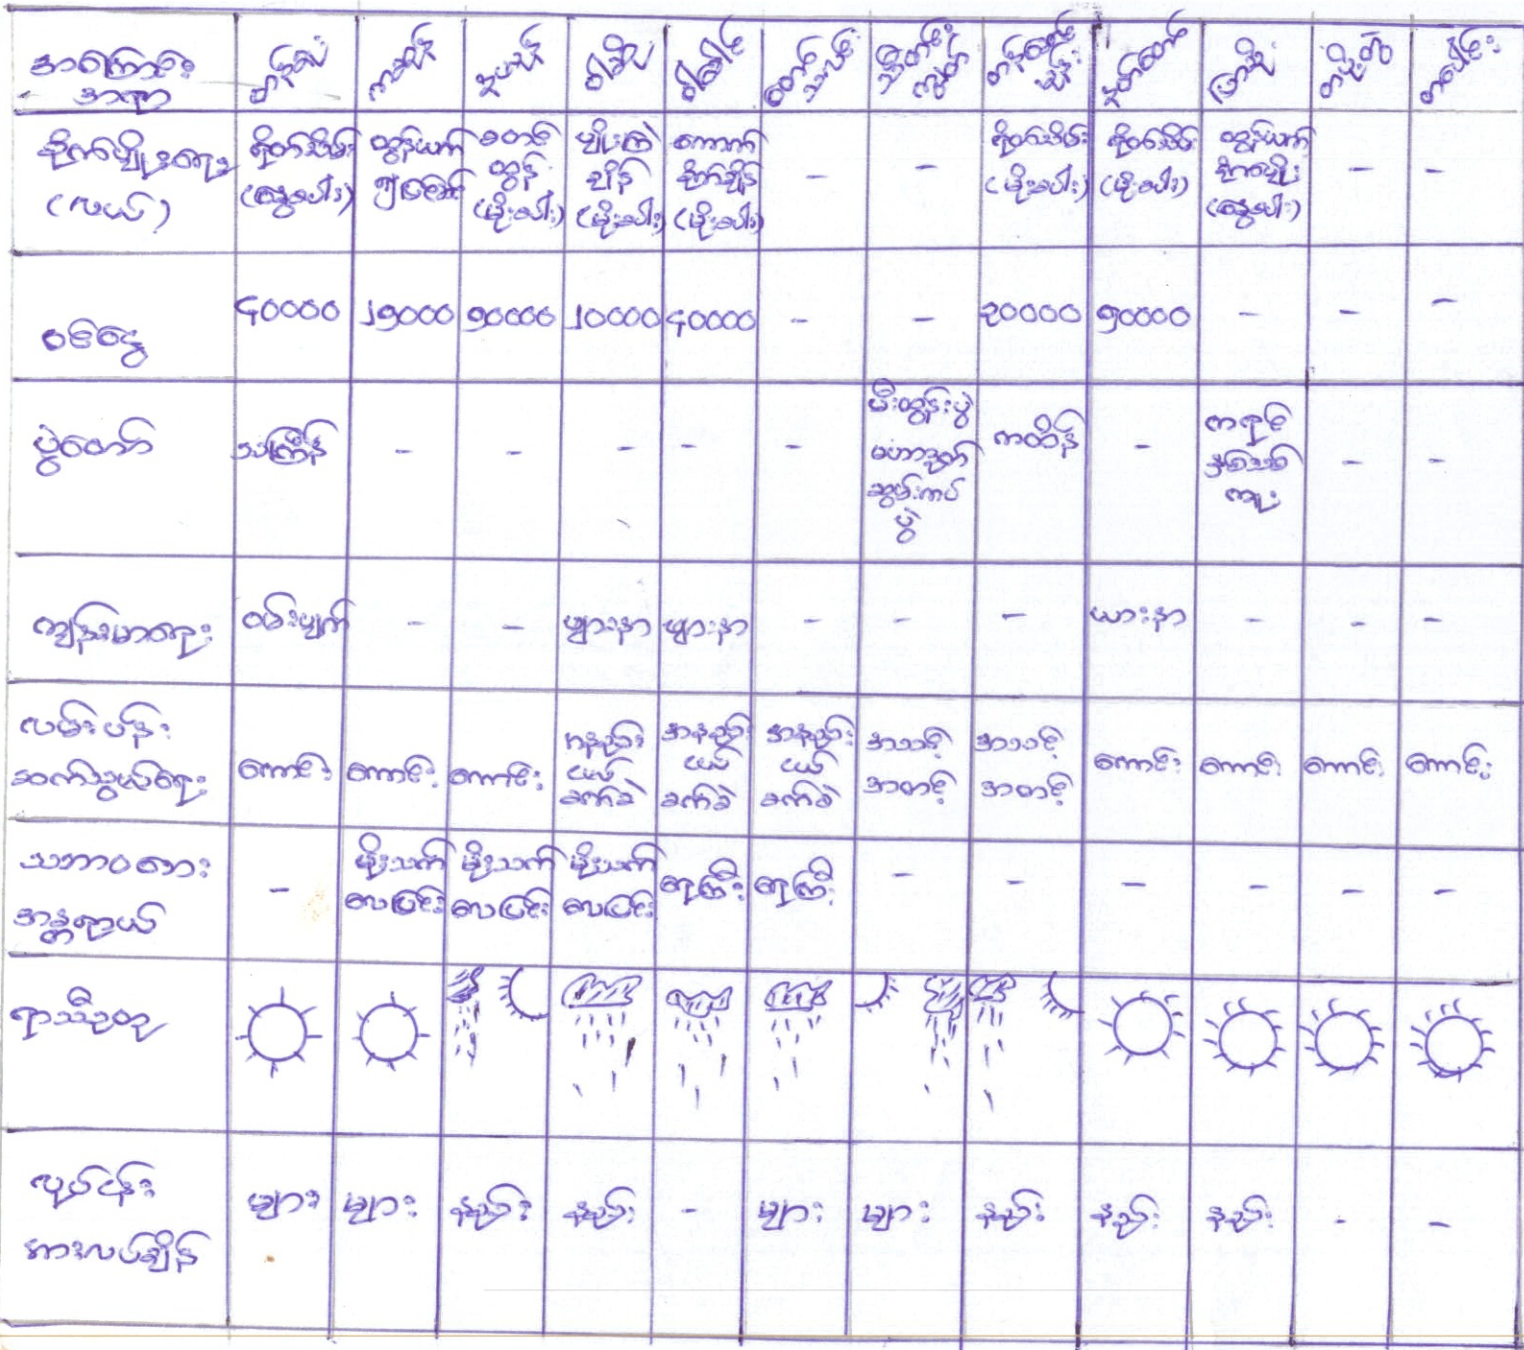 အကြောင်း
အရာ
တန်ခူး
ကဆုန်
နယုန်
ဝါဆို
ဝါခေါင်
တော်သလင်း
သီတင်း
ကျွတ်
တန်ဆောင်
မုန်း
နတ်တော်
ပြာသို
တပို့တွဲ
တပေါင်း
စိုက်ပျိုးရေး
(လယ်)
ရိတ်သိမ်း
(နွေစပါး)
ထွန်ယက်
စတင်
ထွန်
(မိုးစပါး)
ပျိုးကြဲ
ချိန်
(မိုးစပါး)
ကောက်
စိုက်ချိန်
(မိုးစပါး)
–
–
ရိတ်သိမ်း
(မိုးစပါး)
ရိတ်သိမ်း
(မိုးစပါး)
ထွန်ယက်
စိုက်ပျိုး
(နွေစပါး)
–
–
ဝင်ငွေ
၄၀၀၀၀
၂၅၀၀၀
၅၀၀၀၀
၂၀၀၀၀
၄၀၀၀၀
–
–
၃၀၀၀၀
၅၀၀၀၀
–
–
–
ပွဲတော်
သင်္ကြန်
–
–
–
–
–
မီးထွန်းပွဲ
မဟာဒုတ်
ဆွမ်းကပ်
ပွဲ
ကထိန်
–
ကရင်
နှစ်သစ်
ကူး
–
–
ကျန်းမာရေး
ဝမ်းပျက်
–
–
ဖျားနာ
ဖျားနာ
–
–
–
ယားနာ
–
–
–
လမ်းပန်း
ဆက်သွယ်ရေး
ကောင်း
ကောင်း
ကောင်း
အနည်း
ငယ်
ခက်ခဲ
အနည်း
ငယ်
ခက်ခဲ
အနည်း
ငယ်
ခက်ခဲ
အသင့်
အတင့်
အသင့်
အတင့်
ကောင်း
ကောင်း
ကောင်း
ကောင်း
သဘာဝဘေး
အန္တရာယ်
–
မိုးသက်
လေပြင်း
မိုးသက်
လေပြင်း
မိုးသက်
လေပြင်း
ရေကြီး
ရေကြီး
–
–
–
–
–
–
ရာသီဥတု
လုပ်ငန်း
အားလပ်ချိန်
များ
များ
နည်း
နည်း
–
များ
များ
နည်း
နည်း
နည်း
–
–